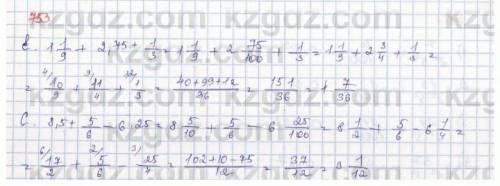 753
E. 1 1/9 + 2,75 + 1/3 = 1 1/9 + 2 75/100 + 1/3 = 1 1/3 + 2 3/4 + 1/3 =
= 4/ 10/9 + 9/ 11/4 + 12/ 1/3 = 40+99+12/36 = 151/36 = 1 7/36
C. 8,5 + 5/6 - 6,25 = 8 5/10 + 5/6 - 6 25/100 = 8 1/2 + 5/6 - 6 1/4 =
= 6/ 17/2 + 2/ 5/6 - 3/ 25/4 = 102+10-75/12 = 37/12 = 3 1/12